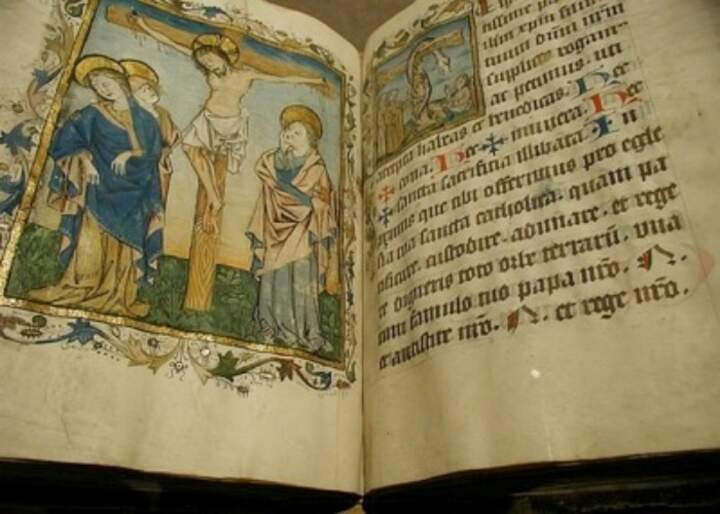 tissime
ihm xpm
tuum dnm nrm
supplices rogam
ac petimus. uti
accepta habeas et benedicas. Hec
dona. Hec ✠ munera. Hec
✠ sancta sacrificia illibata. In
primis que tibi offerimus pro eccle
sia tua sancta catholica. quam pa
cificare. custodire. adunare. et rege
re digneris toto orbe terrarū. vna
cum famulo tuo papa nrō. N.
et antistite nrō. N. et rege nrō.